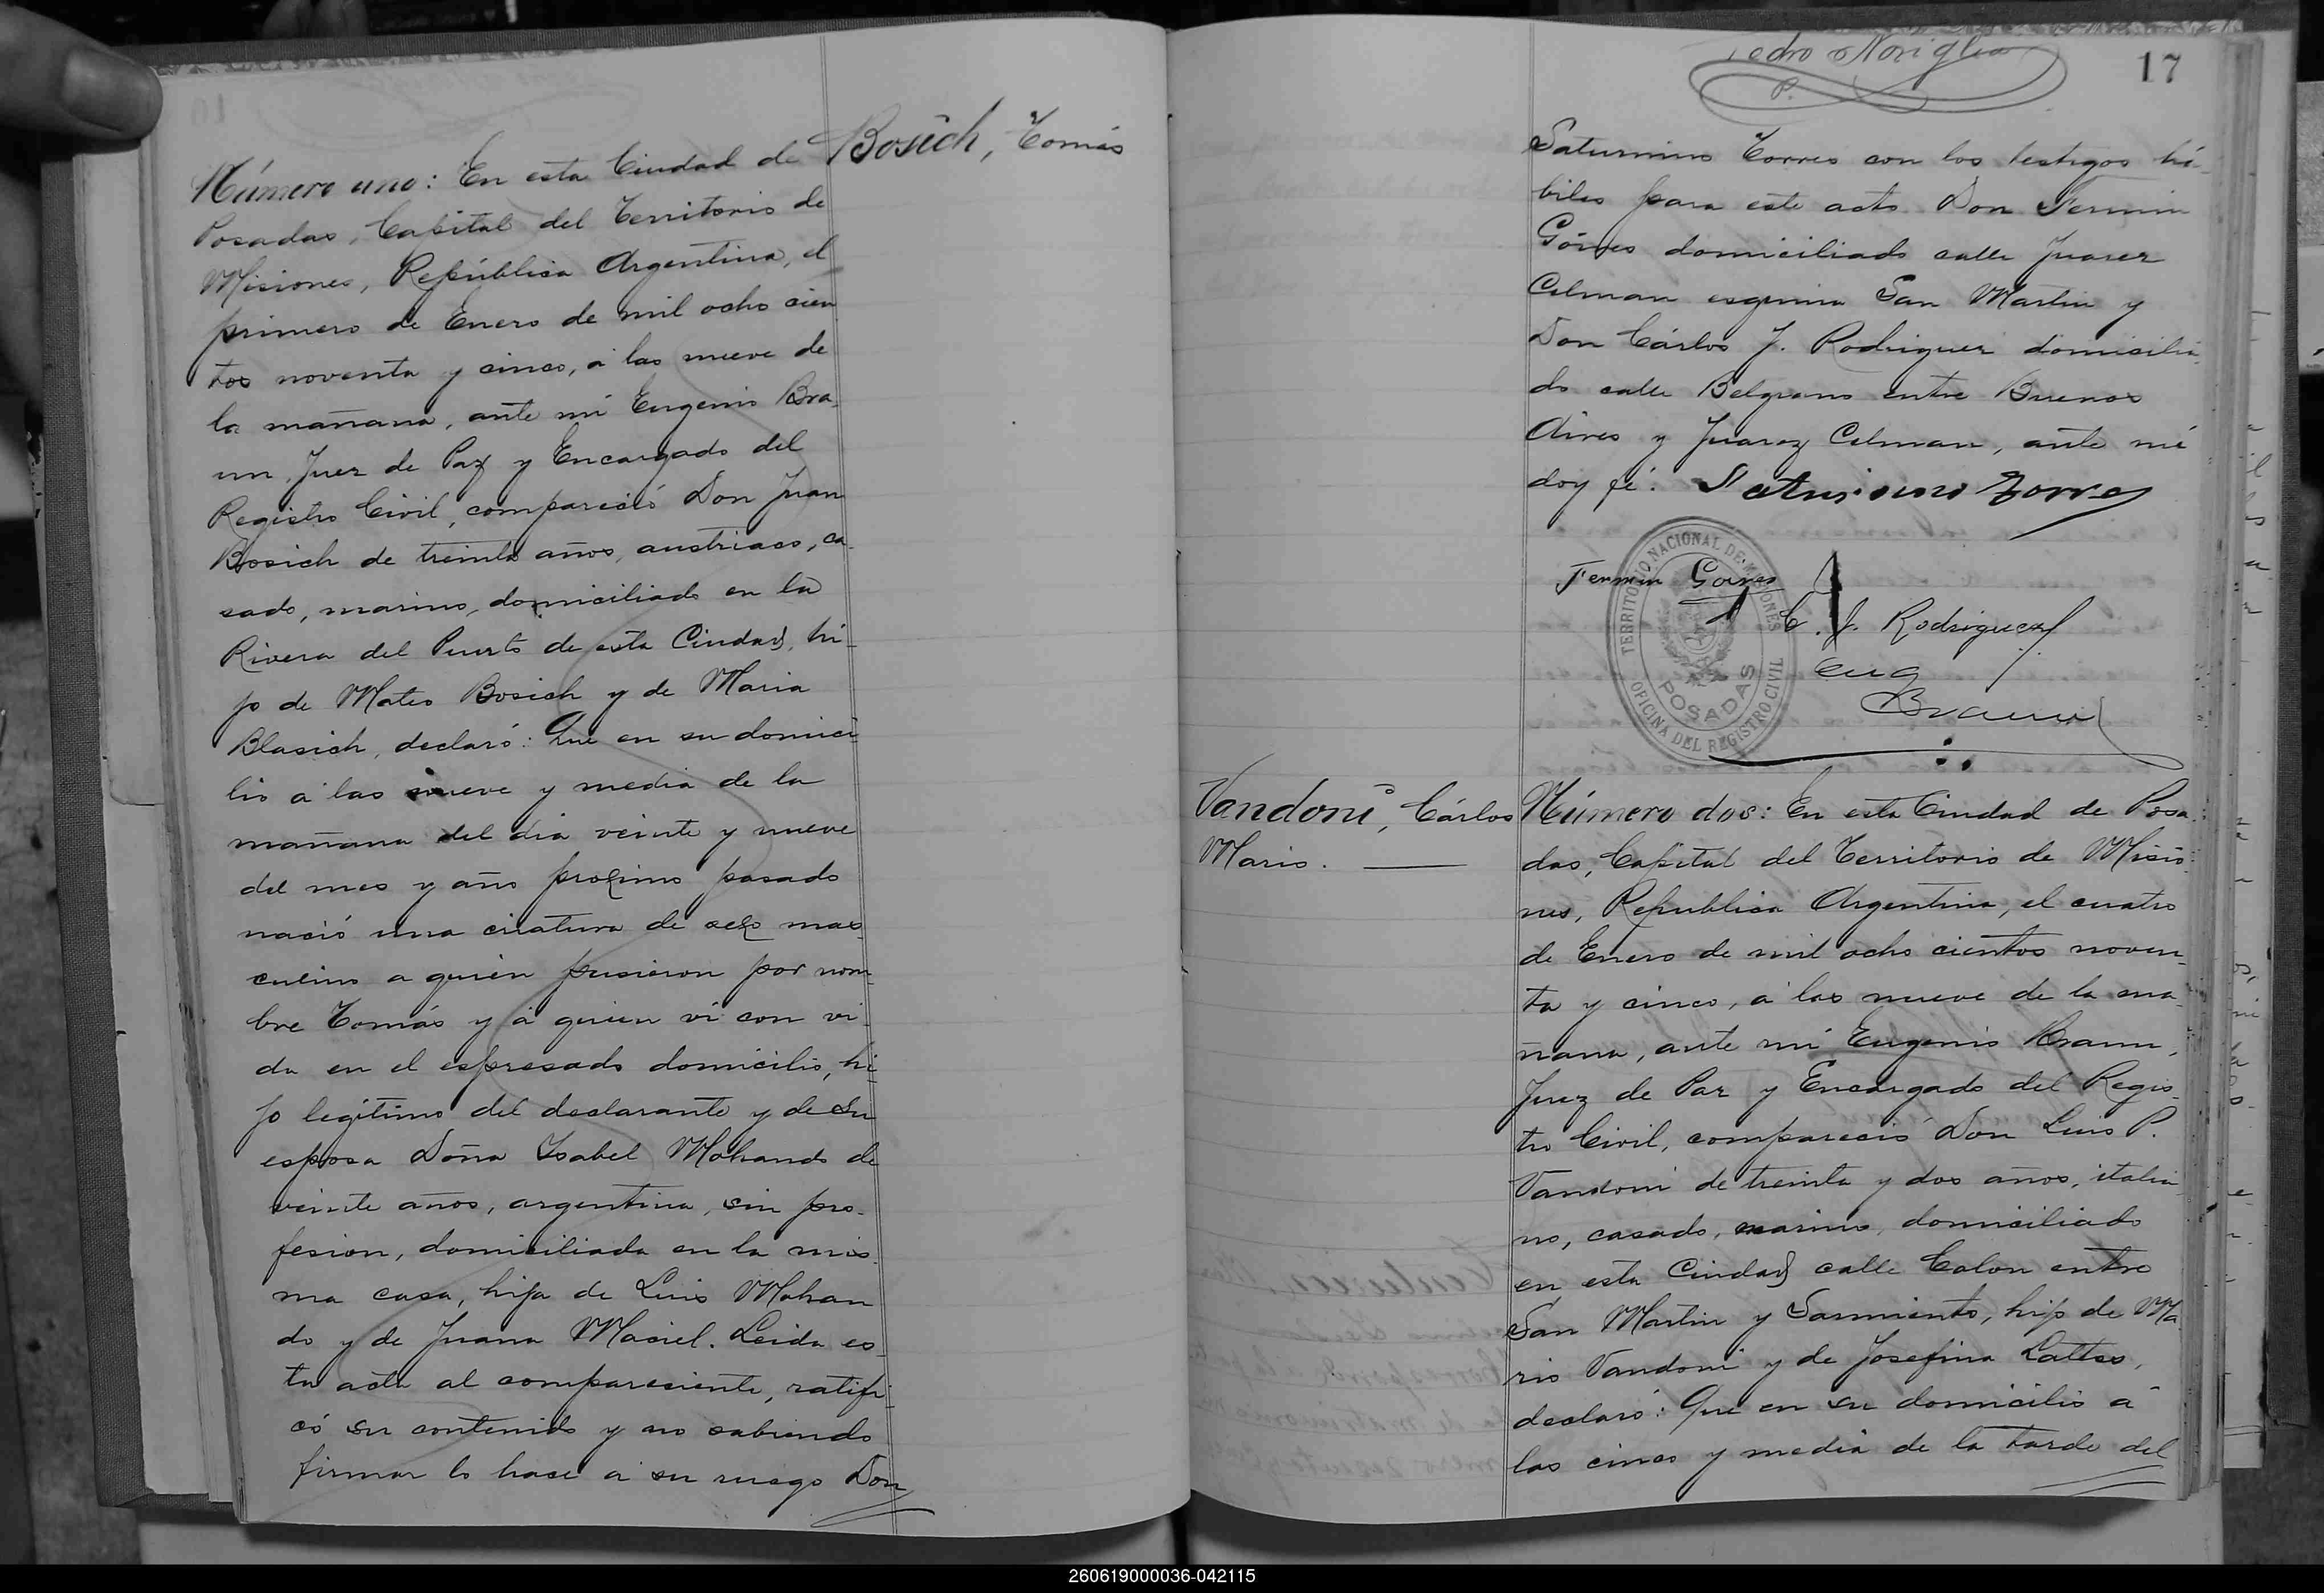 Bosich, Tomás
Número uno: En esta Ciudad de
Posadas, Capital del Territorio de
Misiones, República Argentina, el
primero de Enero de mil ocho cien
tos noventa y cinco, á las nueve de
la mañana, ante mí Eugenio Bra
un, Juez de Paz y Encargado del
Registro Civil, compareció Don Juan
Bosich de treinta años, austriaco, ca-
sado, marino, domiciliado en la
Rivera del Puerto de esta Ciudad, hi-
jo de Mateo Bosich y de Maria
Blasich, declaró: Que en su domici
lio á las nueve y media de la
mañana del dia veinte y nueve
del mes y año proximo pasado
nació una criatura de sexo mas-
culino a quien pusieron por nom-
bre Tomás y á quien ví con vi-
da en el espresado domicilio, hi-
jo legítimo del declarante y de su
esposa Doña Isabel Mohando de
veinte años, argentina, sin pro-
fesion, domiciliada en la mis-
ma casa, hija de Luis Mohan
do y de Juana Maciel. Leida es-
ta acta al compareciente, ratifi-
có su contenido y no sabiendo
firmar lo hace á su ruego Don
Pedro Noziglia
P.
17
Saturnino Torres con los testigos há-
biles para este acto Don Fermin
Goires domiciliado calle Juarez
Celman esquina San Martin y
Don Cárlos J. Rodriguez domicilia-
do calle Belgrano entre Buenos
Aires y Juarez Celman, ante mí
doy fé. Saturnino Torres
Fermin Goires
C. J. Rodriguez
Eug
Braun
TERRITORIO NACIONAL DE MISIONES
POSADAS
OFICINA DEL REGISTRO CIVIL
Vandoni, Cárlos
Mario.
Número dos: En esta Ciudad de Posa-
das, Capital del Territorio de Misio-
nes, Republica Argentina, el cuatro
de Enero de mil ocho cientos noven-
ta y cinco, á las nueve de la ma-
ñana, ante mí Eugenio Braun,
Juez de Paz y Encargado del Regis-
tro Civil, compareció Don Luis P.
Vandoni de treinta y dos años, italia-
no, casado, marino, domiciliado
en esta Ciudad calle Colon entre
San Martin y Sarmiento, hijo de Ma-
rio Vandoni y de Josefina Lattes,
declaró: Que en su domicilio á
las cinco y media de la tarde del
260619000036-042115